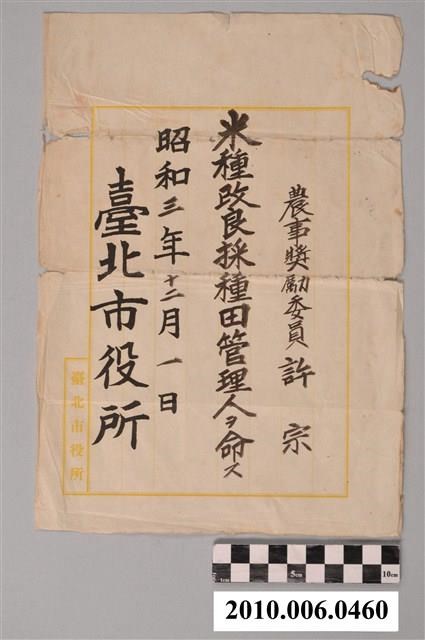 農事奬勵委員 許宗
米種改良採種田管理人ヲ命ス
昭和三年十二月一日
臺北市役所
臺北市役所
1cm 5cm 10cm
2010.006.0460